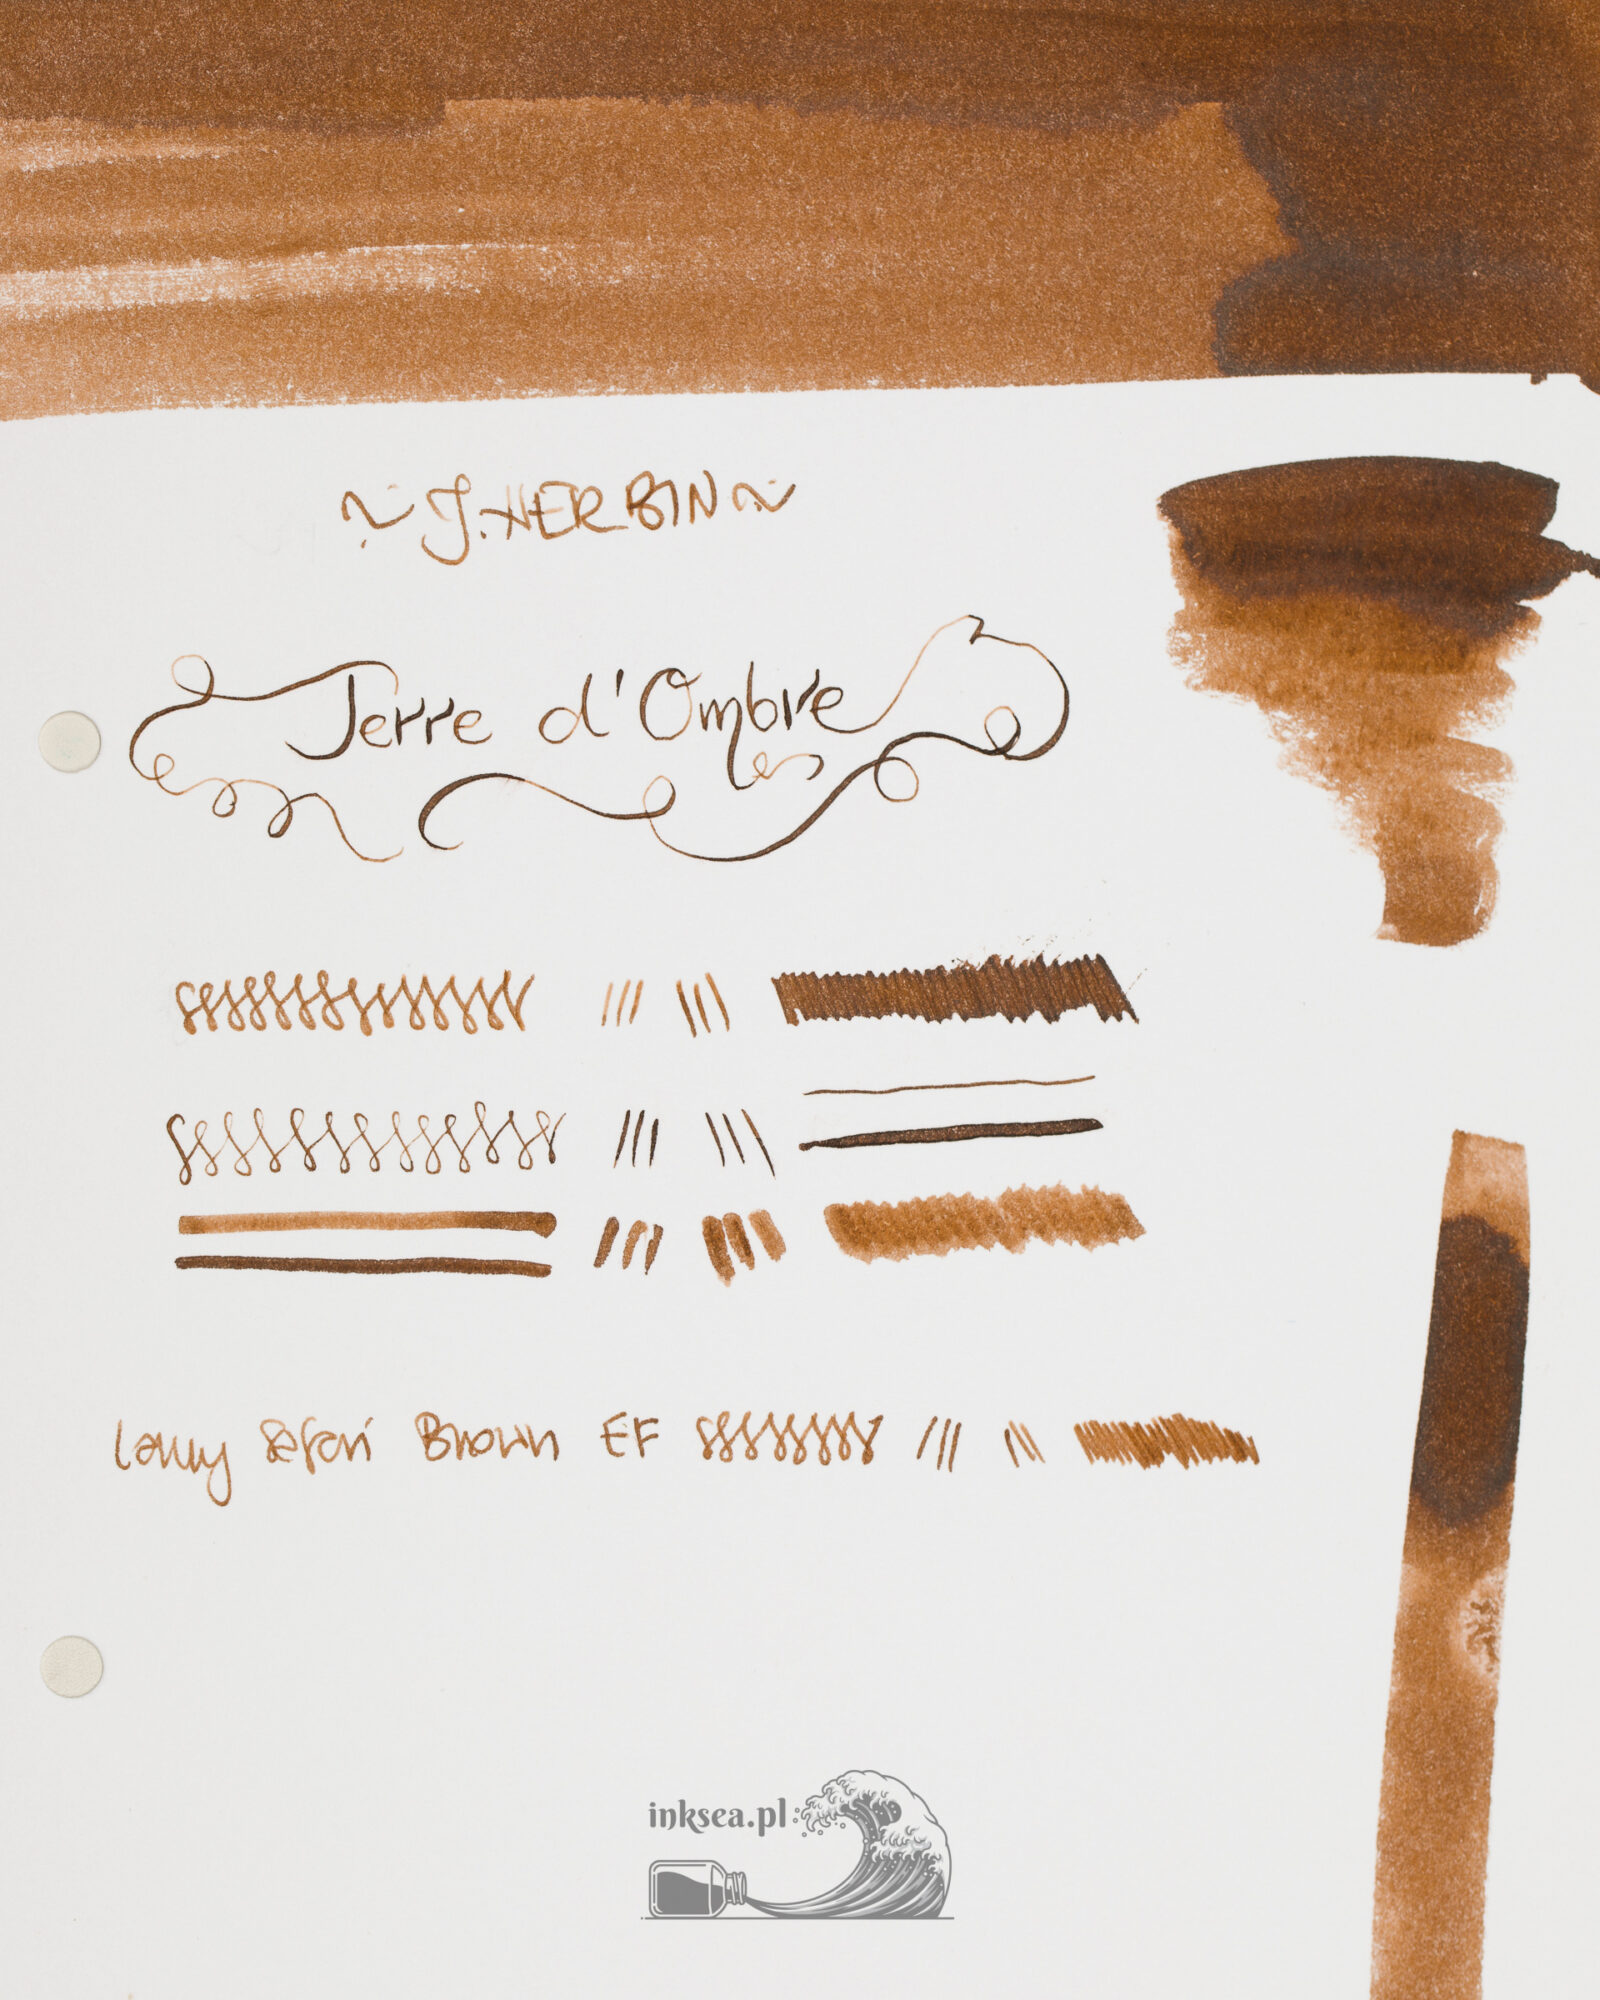 ~ J. HERBIN ~
Terre d'Ombre
Lamy Safari Brown EF
inksea.pl